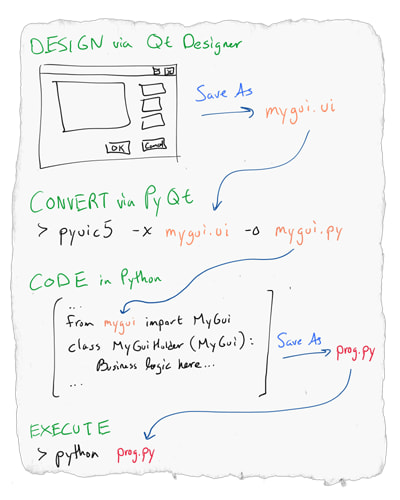 DESIGN via Qt Designer
Save As
mygui.ui
OK
Cancel
CONVERT via PyQt
> pyuic5 -x mygui.ui -o mygui.py
CODE in Python
...
from mygui import MyGui
class MyGuiHolder (MyGui):
Business logic here...
...
Save As
prog.py
EXECUTE
> python prog.py